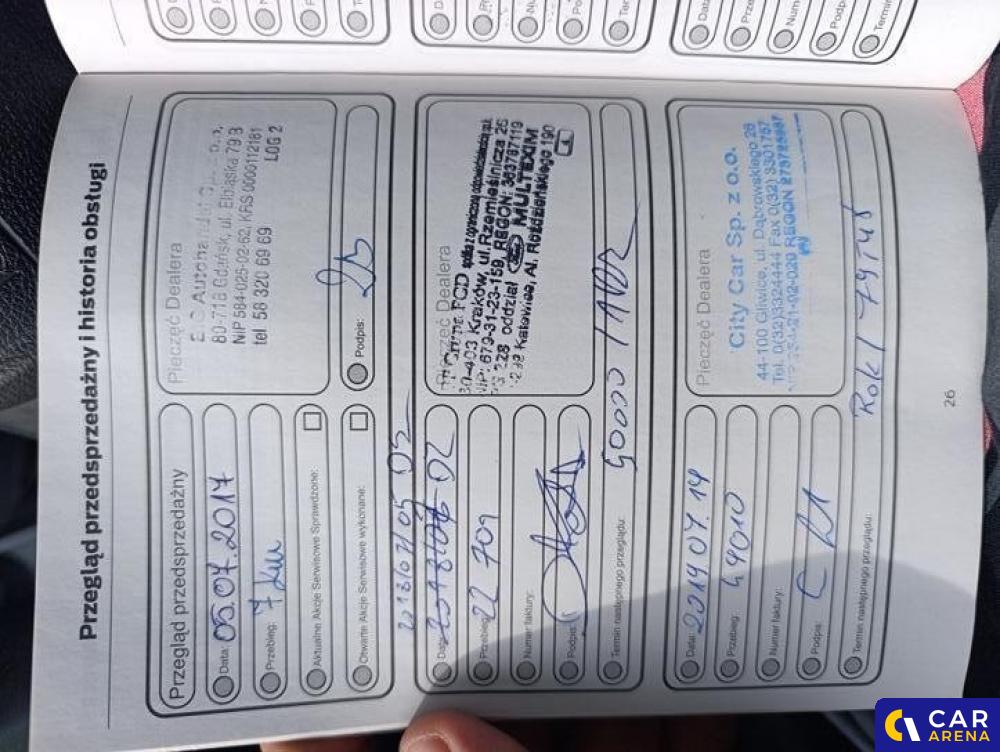 Przegląd przedsprzedażny i historia obsługi
Przegląd przedsprzedażny
Data: 05.07.2017
Przebieg: 7 km
Aktualne Akcje Serwisowe Sprawdzone:
Otwarte Akcje Serwisowe wykonane:
Pieczęć Dealera
80-718 Gdańsk, ul. Elbląska 79 B
NIP 584-025-02-62, KRS 0000112181
tel. 58 320 69 69 LOG 2
Podpis:
Data:
Przebieg: 22 709
Numer faktury:
Podpis:
Termin następnego przeglądu:
Pieczęć Dealera
FCD spółka z ograniczoną odpowiedzialnością sp.k.
30-403 Kraków, ul. Rzemieślnicza 26
NIP: 679-31-23-159, REGON: 363787119
oddział MULTEXIM
Katowice, Al. Roździeńskiego 190
Data: 2019.07.14
Przebieg: 49010
Numer faktury:
Podpis:
Termin następnego przeglądu: Rok /
Pieczęć Dealera
City Car Sp. z o.o.
44-100 Gliwice, ul. Dąbrowskiego 26
Tel. 0(32)3324444 Fax 0(32) 3301767
26
CAR
ARENA